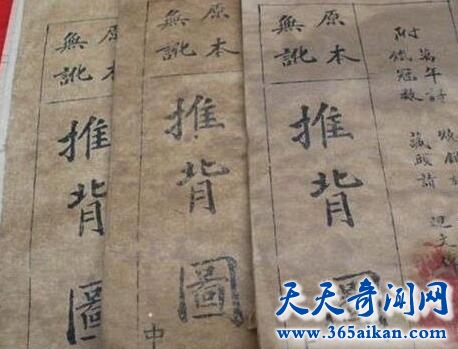 原本
無訛
推背圖
中
原本
無訛
推背圖
中
原本
無訛
推背圖
附
萬年
藏頭
天天奇闻网
www.365aikan.com